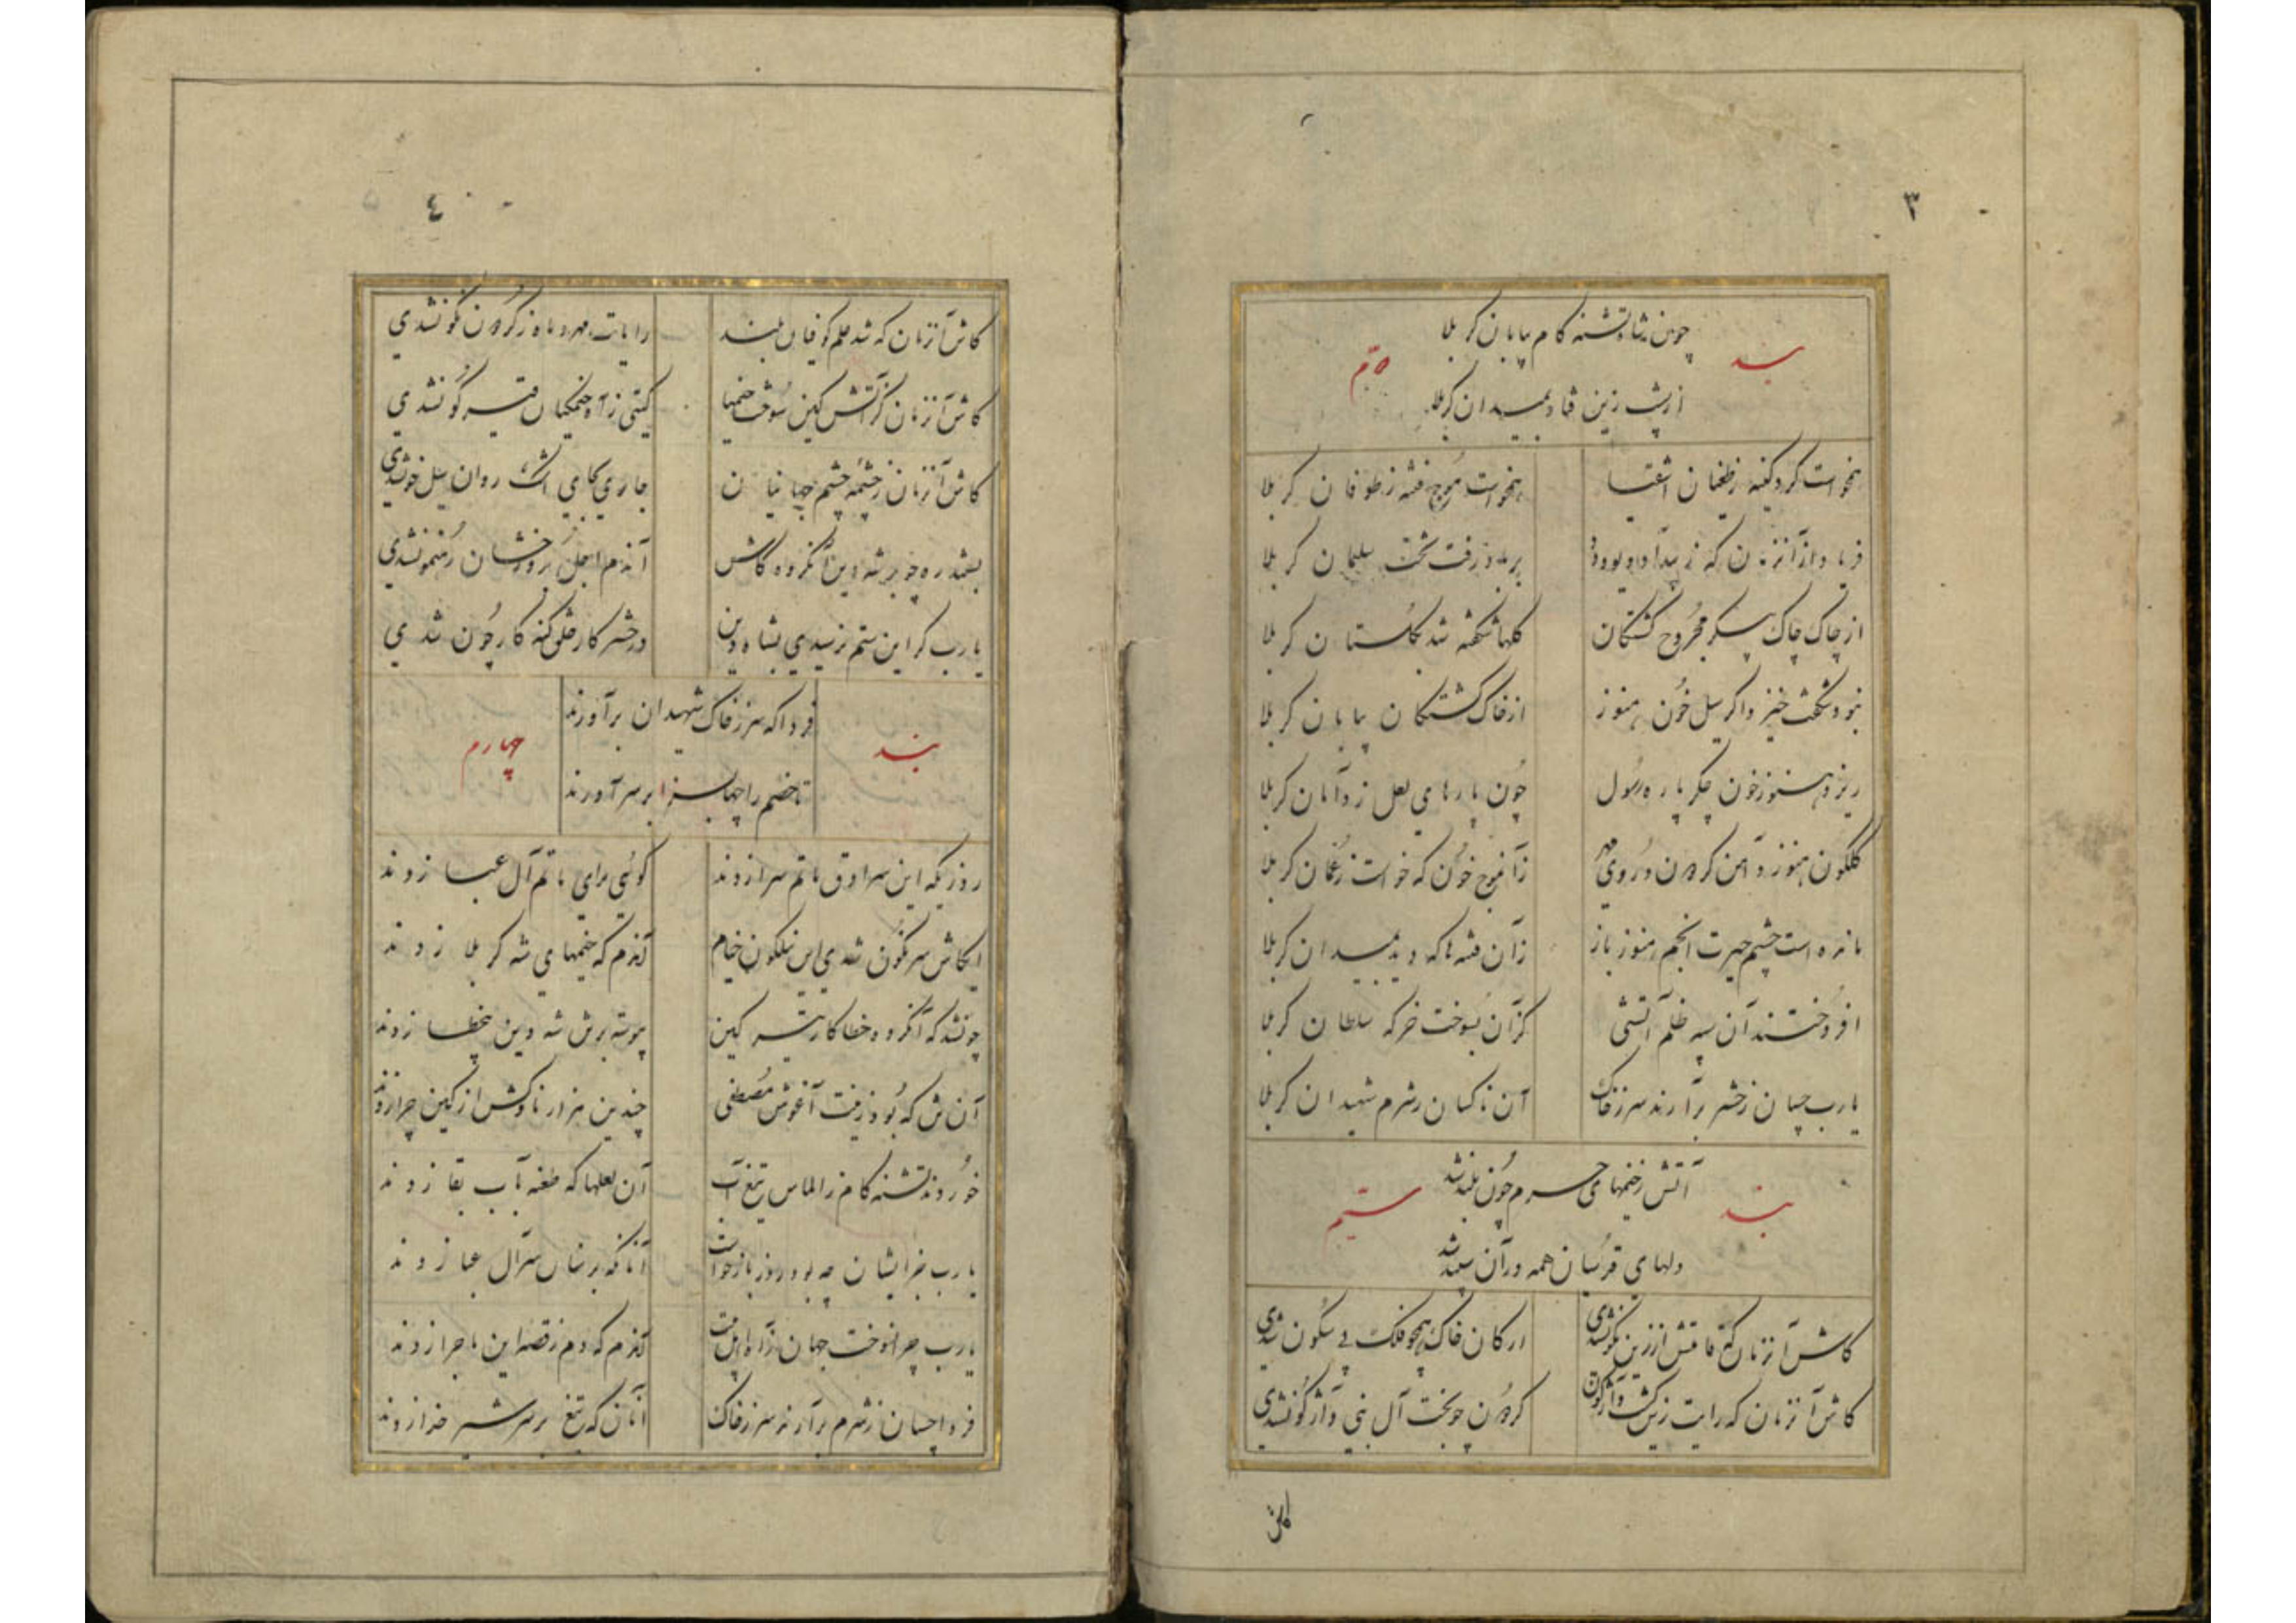 ۳
بند دوم
چون شاه تشنه کام بیابان کربلا
از پشت زین فتاد بمیدان کربلا
برخواست کرد کینه ز طغیان اشقیا برخواست موج فتنه ز طوفان کربلا
فریاد از آنزمان که ز بیداد دیو و دد بر باد رفت تخت سلیمان کربلا
از چاک چاک پیکر مجروح کشتکان کلها شکفته شد بکلستان کربلا
نبود شکفت خیزد اکر سیل خون هنوز از خاک کشتکان بیابان کربلا
ریزد هنوز خون جکر پاره رسول چون پارهای لعل ز دامان کربلا
کلکون هنوز دامن کردون و روی مهر زآنموج خون که خواست ز عمان کربلا
مانده است چشم حیرت انجم هنوز باز زآن فتنها که دید بمیدان کربلا
افروختند آن سپه ظلم آتشی کز آن بسوخت خرکه سلطان کربلا
یارب چسان ز حشر برآرند سر ز خاک آن ناکسان ز شرم شهیدان کربلا
بند سیم
آتش ز خیمهای حرم چون بلند شد
دلهای قدسیان همه در آن سپند شد
کاش آنزمان که قامتش از زین نکونشدی ارکان خاک همچو فلک بی سکون شدی
کاش آنزمان که رایت زین کشت واژکون کردون چو بخت آل نبی واژکونشدی
کاش
٤
کاش آنزمان که شد علم کوفیان بلند رایات مهر و ماه ز کردون نکونشدی
کاش آنزمان کز آتش کین سوخت خیمها کیتی ز آه خیمکیان قیرکونشدی
کاش آنزمان ز چشمه چشم جهانیان جاری بجای اشک روان سیل خونشدی
آندم اجل بروزشان رهنمونشدی
یارب کر این ستم نرسیدی بشاه دین در حشر کار خلق کنه کار چون شدی
بند چهارم
فردا که سر ز خاک شهیدان برآورند
تا خصم را چها بسزا بر سر آورند
روزیکه این سرادق ماتم سرا زدند کوئی برای ماتم آل عبا زدند
ایکاش سرنکون شدی این نیلکون خیام آندم که خیمهای شه کربلا زدند
چونشد که آنکروه خطاکار تیر کین پیوسته برش شه دین بیخطا زدند
آن تن که بود زینت آغوش مصطفی چندین هزار ناوکش از کین چرا زدند
خوردند تشنه کام ز الماس تیغ آب آن لعلها که طعنه بآب بقا زدند
یارب جزایشان چه بود روز بازخواست آنانکه بر سنان سر آل عبا زدند
یارب چرا نسوخت جهان ز آه اهل بیت آندم که دم ز قصه این ماجرا زدند
فردا چسان ز شرم برآرند سر ز خاک آنان که تیغ بر سر شیر خدا زدند